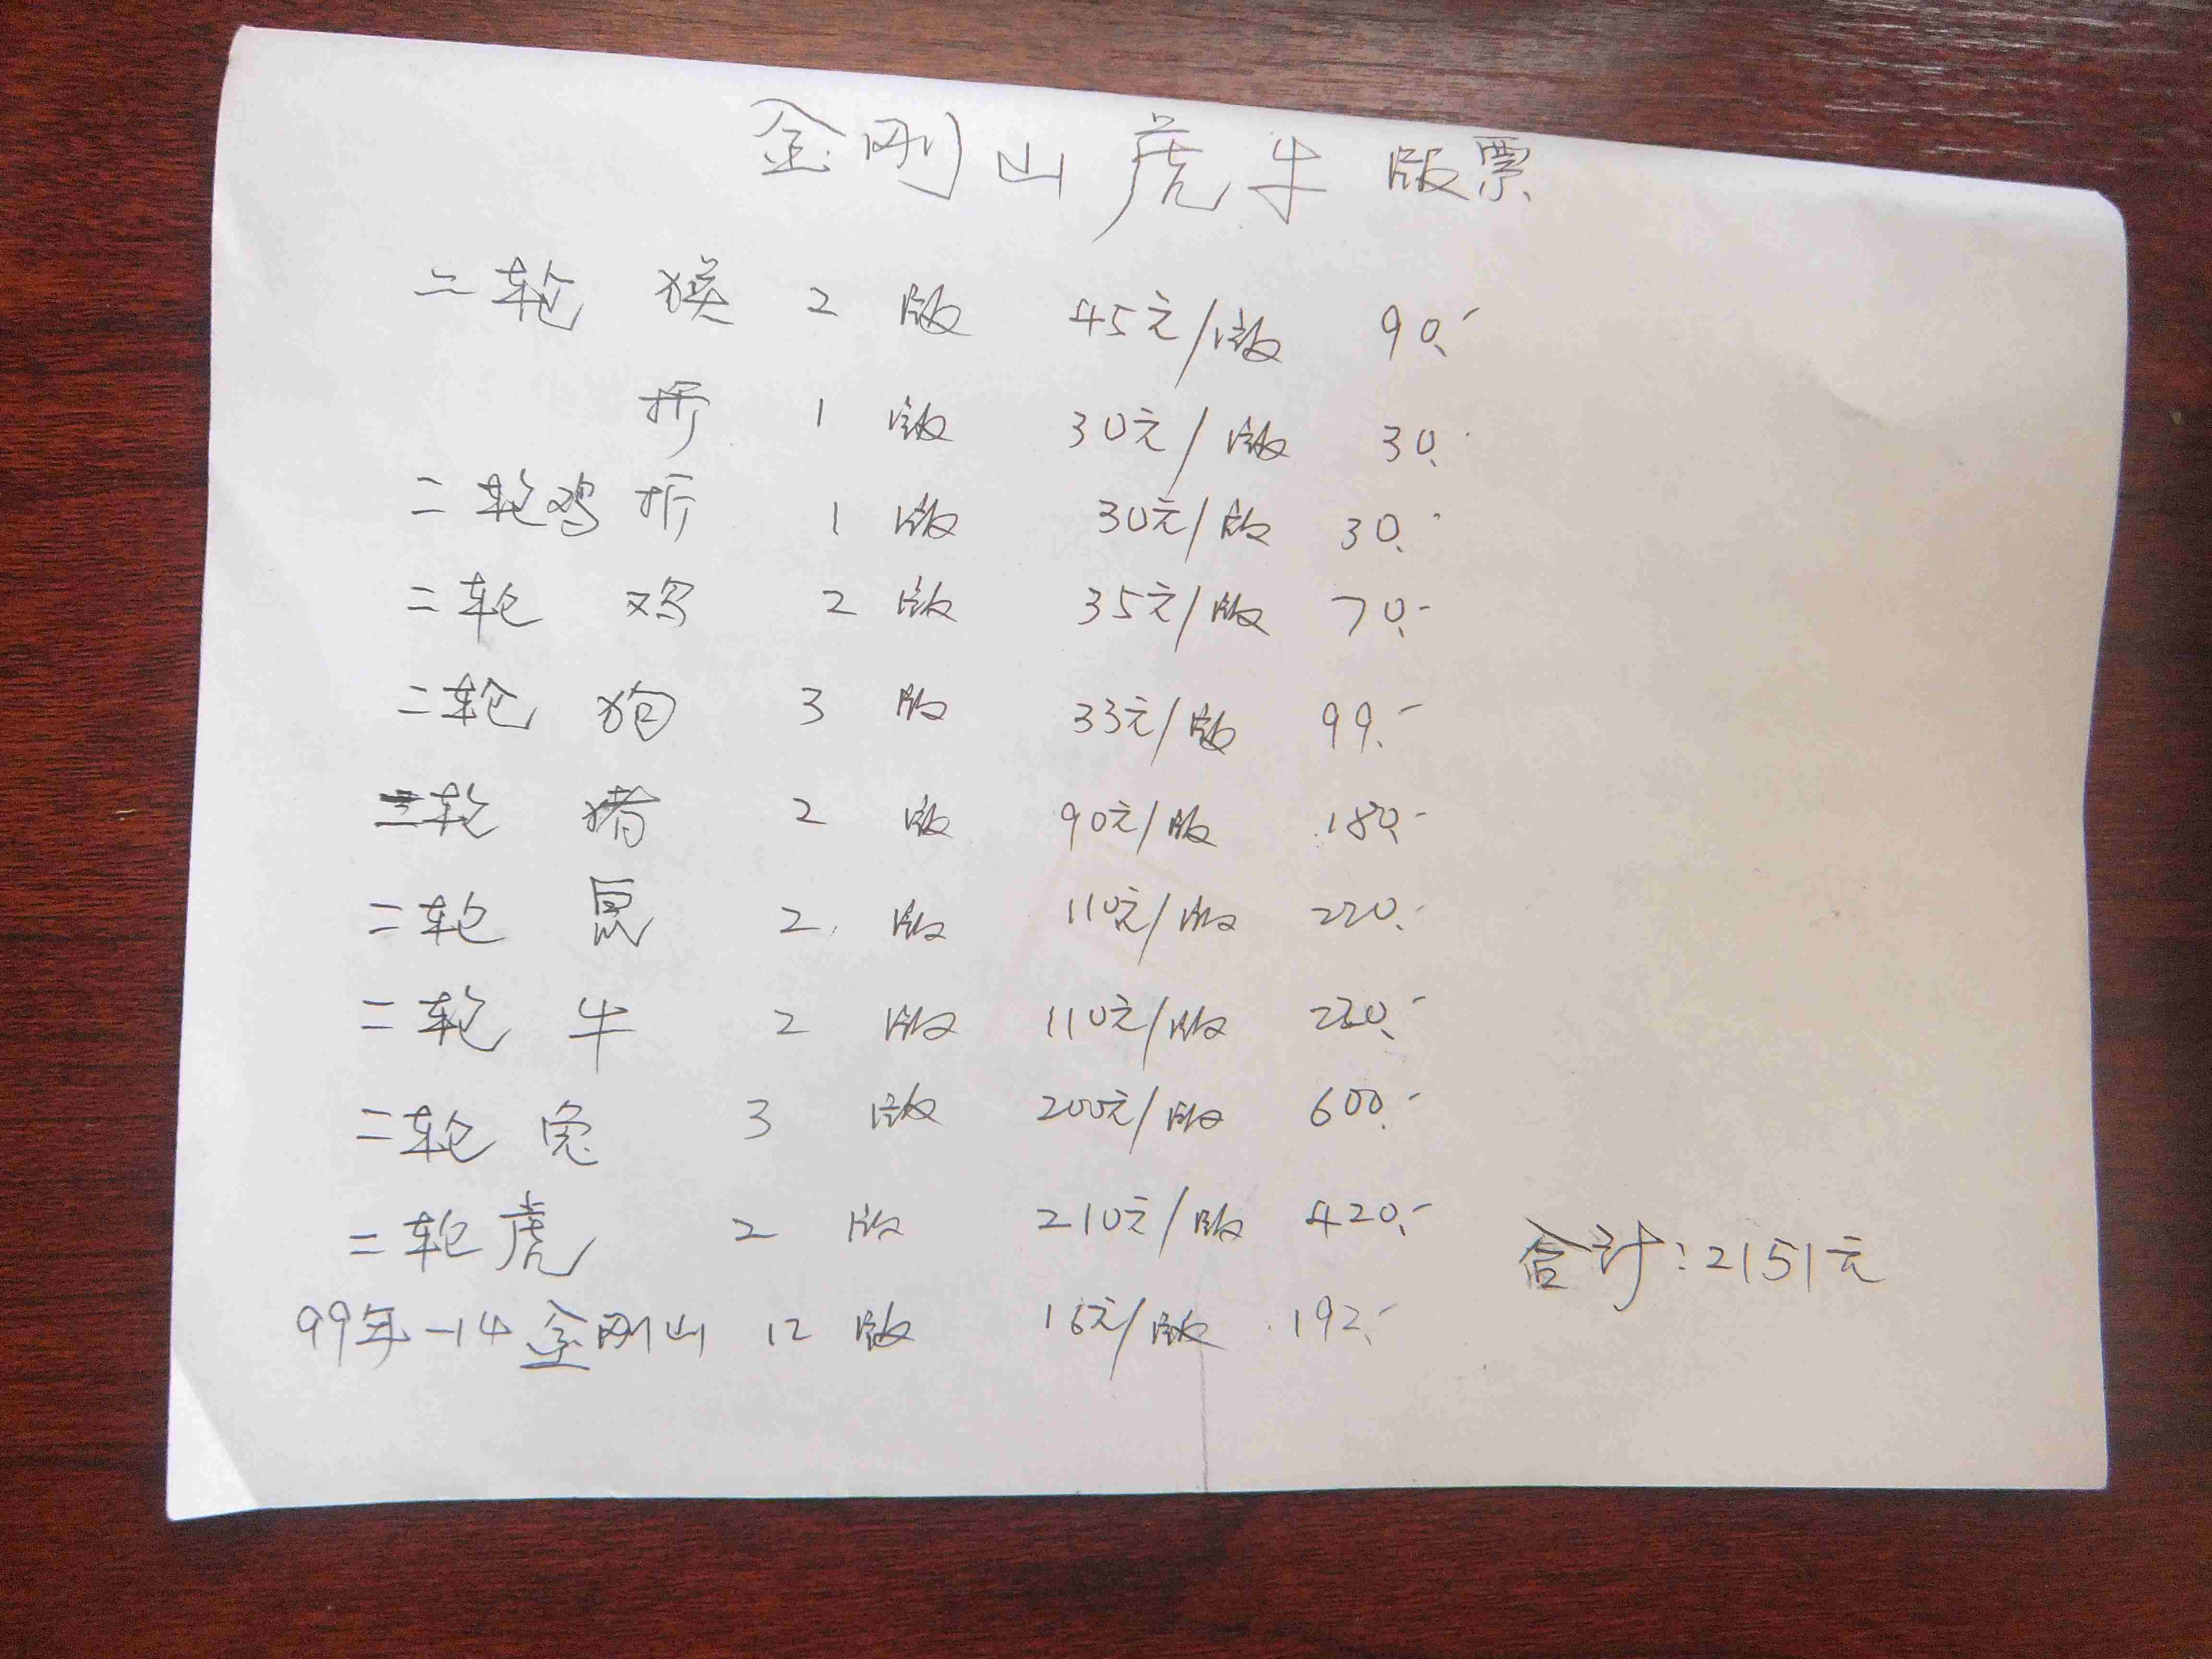 金刚山虎牛版票
二轮 猴 2 版 45元/版 90.-
折 1 版 30元/版 30.-
二轮鸡折 1 版 30元/版 30.-
二轮 鸡 2 版 35元/版 70.-
二轮 狗 3 版 33元/版 99.-
二轮 猪 2 版 90元/版 180.-
二轮 鼠 2 版 110元/版 220.-
二轮 牛 2 版 110元/版 220.-
二轮 兔 3 版 200元/版 600.-
二轮虎 2 版 210元/版 420.-
合计:2151元
99年-14金刚山 12 版 16元/版 192.-